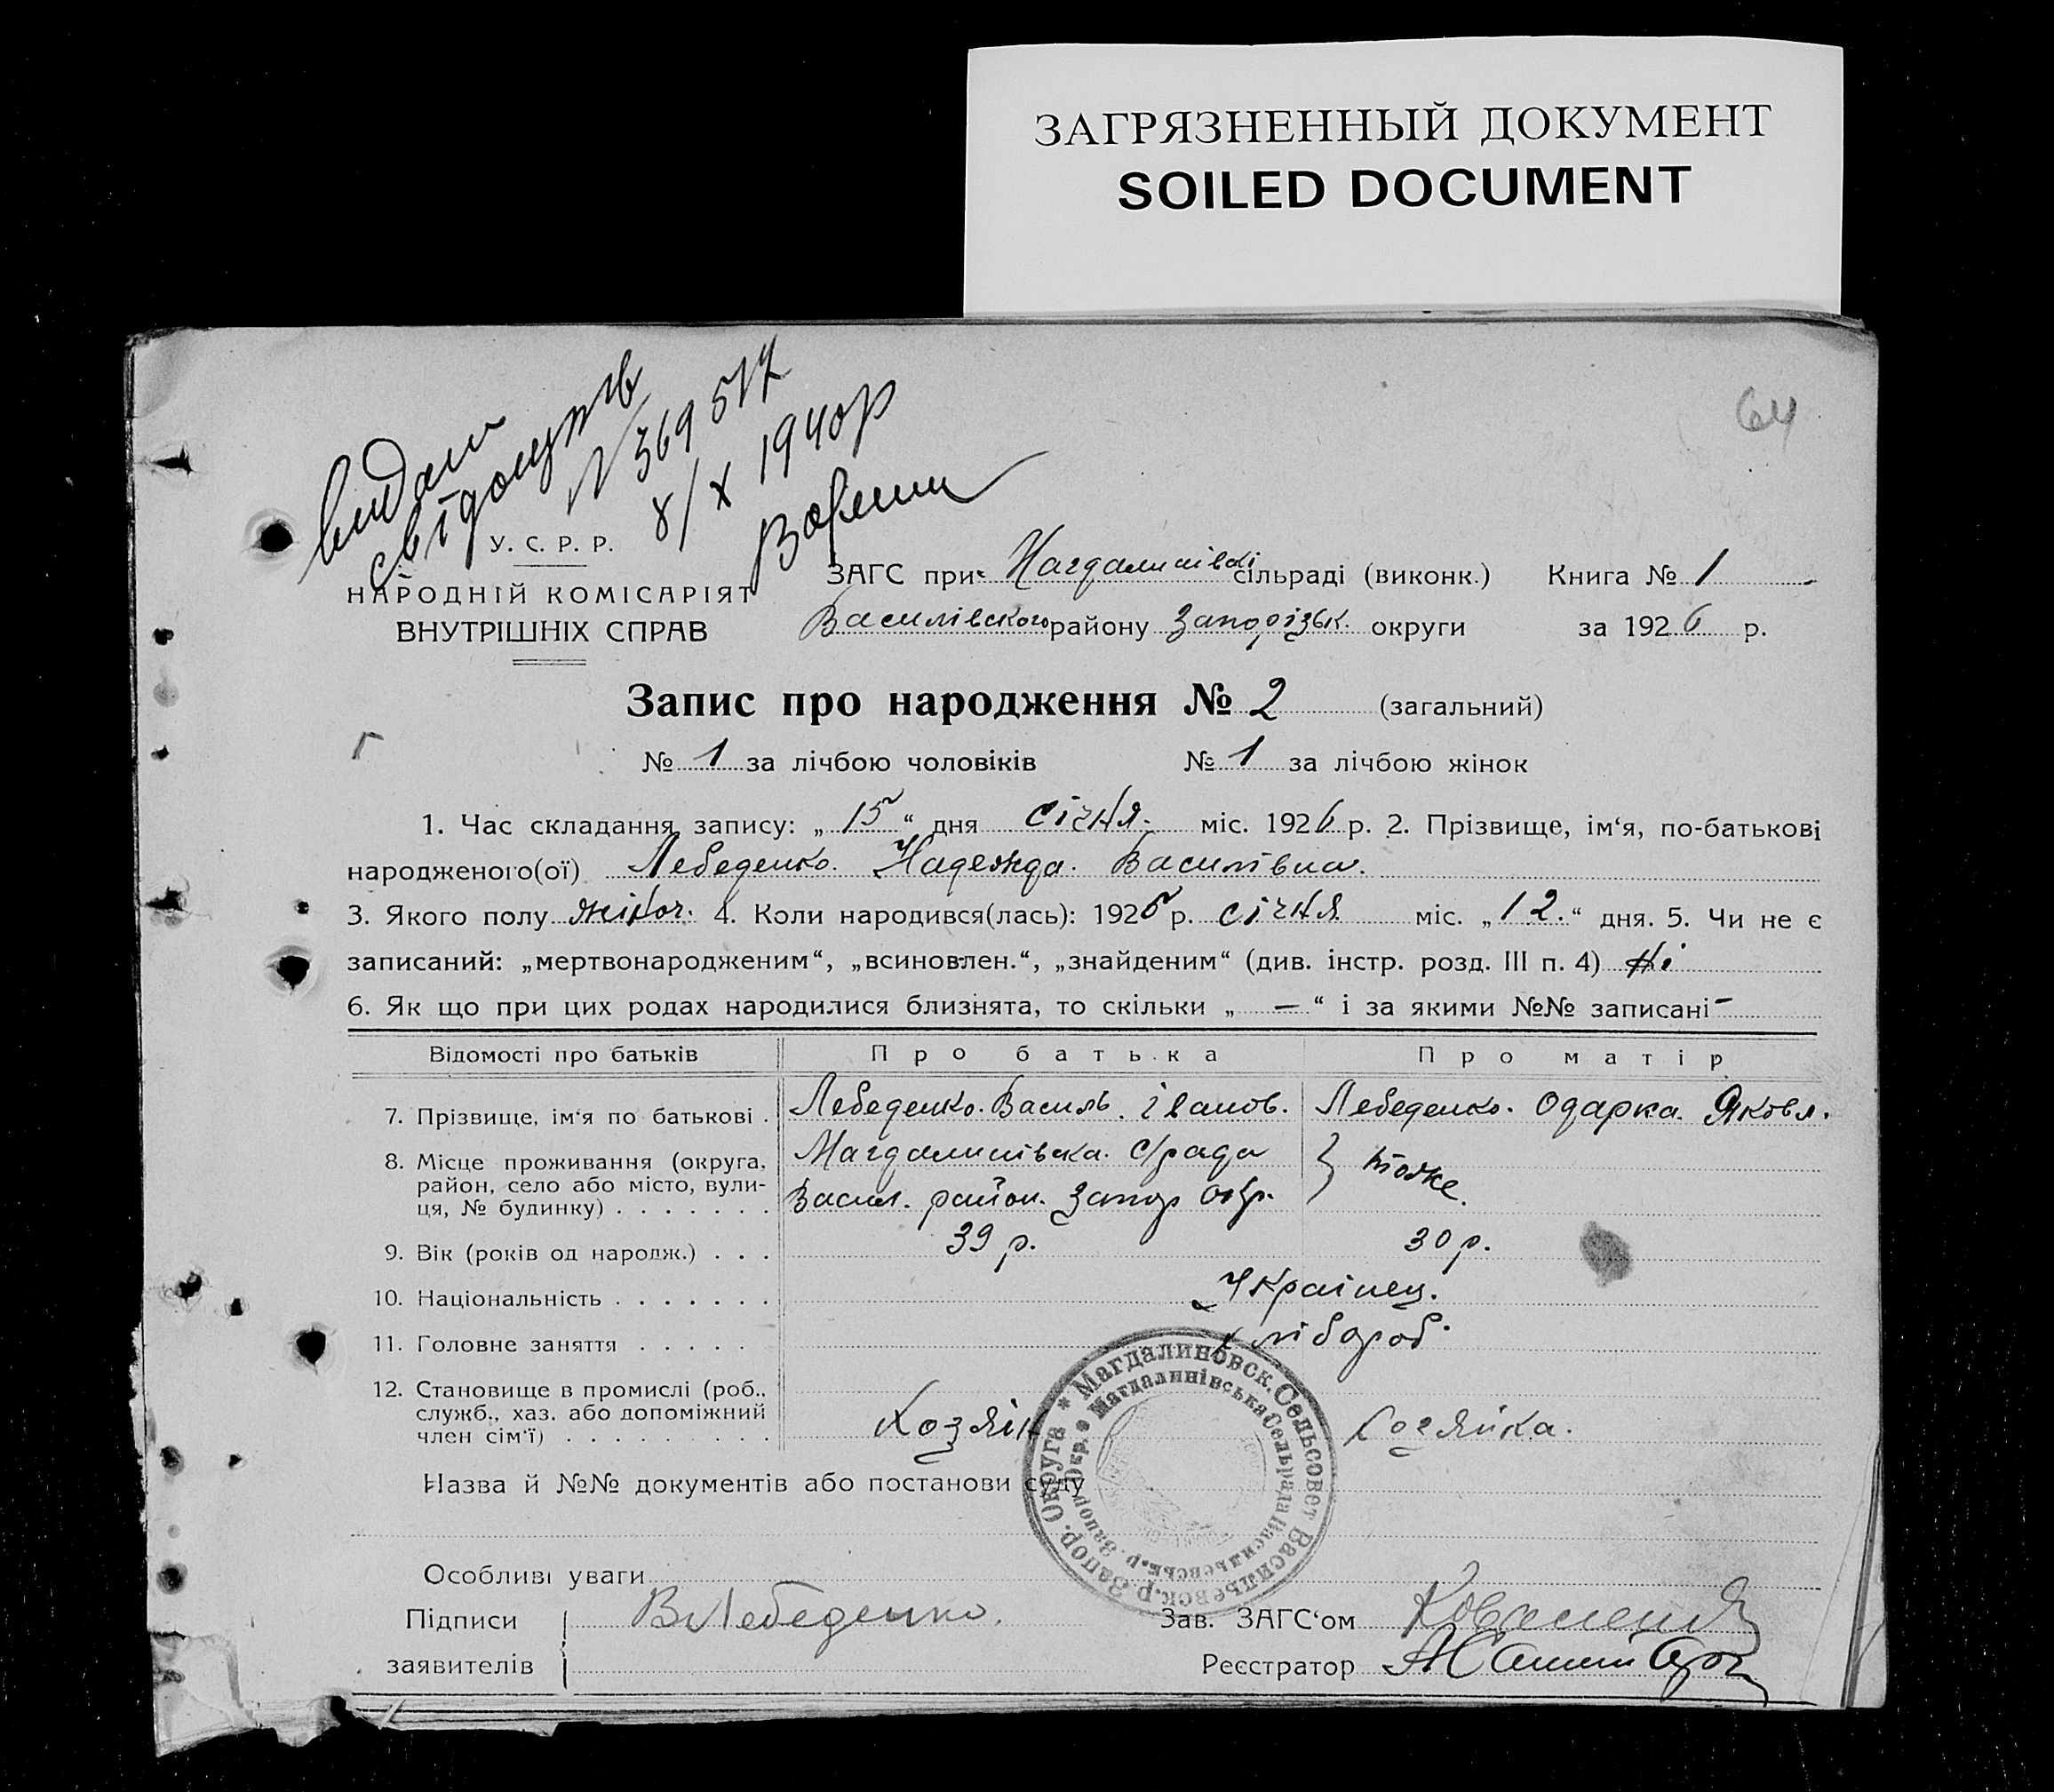 ЗАГРЯЗНЕННЫЙ ДОКУМЕНТ
SOILED DOCUMENT
64
видали
свідоцтв
N 369517
8/X 1940р
У. С. Р. Р.
НАРОДНІЙ КОМІСАРІЯТ
ВНУТРІШНІХ СПРАВ
ЗАГС при Магдалинівскі сільраді (виконк.) Книга № 1
Василівского району Запорізьк. округи за 1926 р.
Запис про народження № 2 (загальний)
№ 1 за лічбою чоловіків № 1 за лічбою жінок
1. Час складання запису: „15“ дня січня. міс. 1926 р. 2. Прізвище, ім‘я, по-батькові
народженого(ої) Лебеденко. Надежда. Василівна.
3. Якого полу жіноч. 4. Коли народився(лась): 1926 р. січня міс. „12.“ дня. 5. Чи не є
записаний: „мертвонародженим“, „всиновлен.“, „знайденим“ (див. інстр. розд. III п. 4) Ні
6. Як що при цих родах народилися близнята, то скільки „—“ і за якими №№ записані –
Відомості про батьків Про батька Про матір
7. Прізвище, ім‘я по батькові . Лебеденко. Василь. Іванов. Лебеденко. Одарка. Яковл.
8. Місце проживання (округа, Магдалинівска. С/рада } тоже.
район, село або місто, вули- Васил. район. Запор Окр.
ця, № будинку) . . . . . . .
9. Вік (років од народж.) . . . 39 р. 30 р.
10. Національність . . . . . . . Українец.
11. Головне заняття . . . . . хлібороб.
12. Становище в промислі (роб.,
служб., хаз. або допоміжний Хозяїн Хозяйка.
член сім‘ї) . . . . . . . . .
Магдалиновск. Сельсовет Васильевск. р. Запор. Округа *
Магдалинівська Сельрада Васильевськ. р. Запор. Окр.
Назва й №№ документів або постанови суду
Особливі уваги
Підписи ВЛебеденко. Зав. ЗАГС‘ом
заявителів Реєстратор